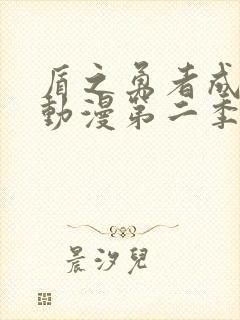 盾之勇者成
動漫第二季
晨汐兒